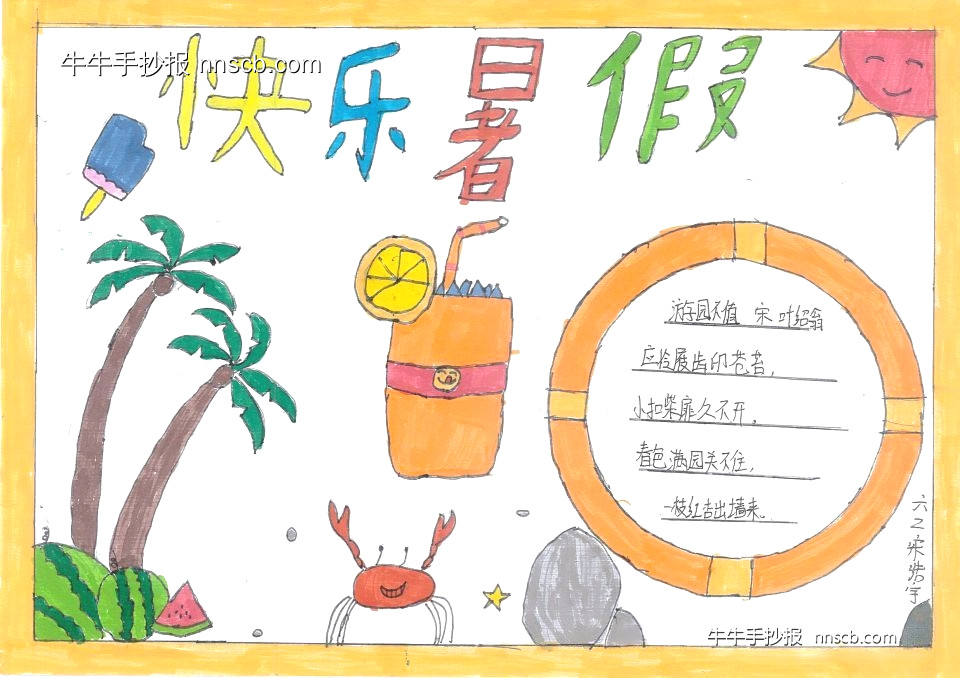 牛牛手抄报 nnscb.com
快乐暑假
游园不值 宋 叶绍翁
应怜屐齿印苍苔，
小扣柴扉久不开。
春色满园关不住，
一枝红杏出墙来。
六2宋浩宇
牛牛手抄报 nnscb.com